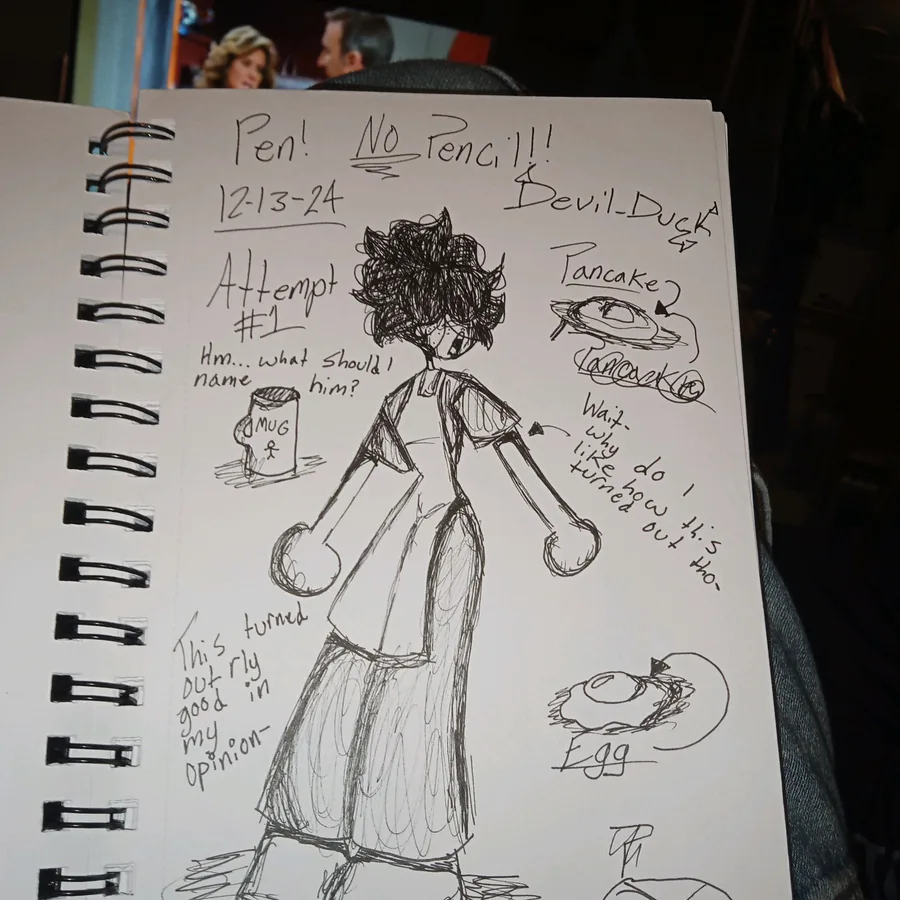 Pen! NO Pencil!!
12-13-24
Devil-Duck
Attempt
#1
Pancake
Hm... what should I
name him?
MUG
Wait-
why do I
like how this
turned out tho-
This turned
out rly
good in
my
opinion-
Egg